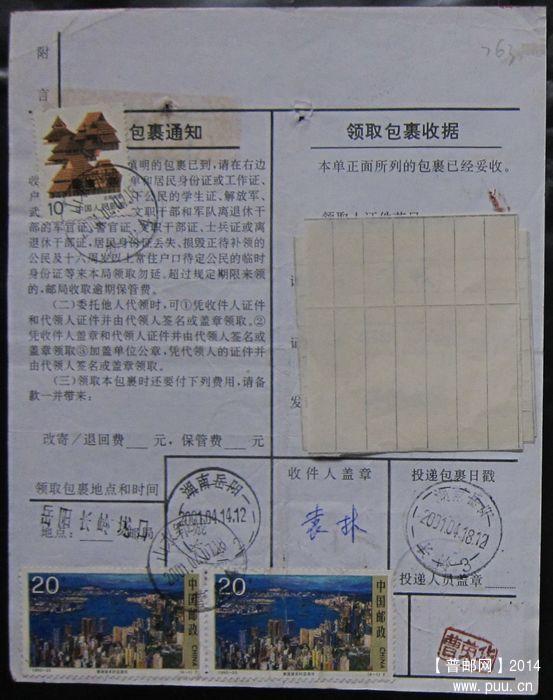 附
言
763
包裹通知
领取包裹收据
填明的包裹已到，请在右边
本单正面所列的包裹已经妥收。
收
单和居民身份证或工作证、
户
公民的学生证、解放军、
武
文职干部和军队离退休干
部的军官证、警官证、文职干部证、士兵证或离
退休干部证，居民身份证丢失、损毁正待补领的
公民及十六周岁以上常住户口待定公民的临时
身份证等来本局领取勿延。超过规定期限来领
的，邮局收取逾期保管费。
(二)委托他人代领时，可①凭收件人证件
和代领人证件并由代领人签名或盖章领取。②
凭收件人盖章和代领人证件并由代领人签名或
盖章领取③加盖单位公章，凭代领人的证件并
由代领人签名或盖章领取。
(三)领取本包裹时还要付下列费用，请备
款一并带来：
改寄/退回费 元，保管费 元
领取包裹地点和时间
收件人盖章
投递包裹日戳
岳阳长岭
地点： 邮局
湖南岳阳
2001.04.14.12
袁林
2001.04.18.12
长岭 3
投递人员盖章
10
中国人民邮政
20
中国邮政
CHINA
20
中国邮政
CHINA
曹英华
【普邮网】2014
www.puu.cn